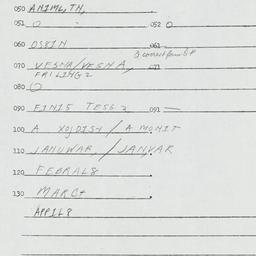 050 ANIML, TH,
051 0 052 0
060 OSKIN 061 —
3 correct forms S P
070 VESNA/VESNA, 071
FRILING 2
080 0
090 FINIS TESG 2 091 —
100 A XOJDISH / A MONIT
110 JANUWAR, / JANVAR
120 FEBRAL8
130 MARCH
APPIL8